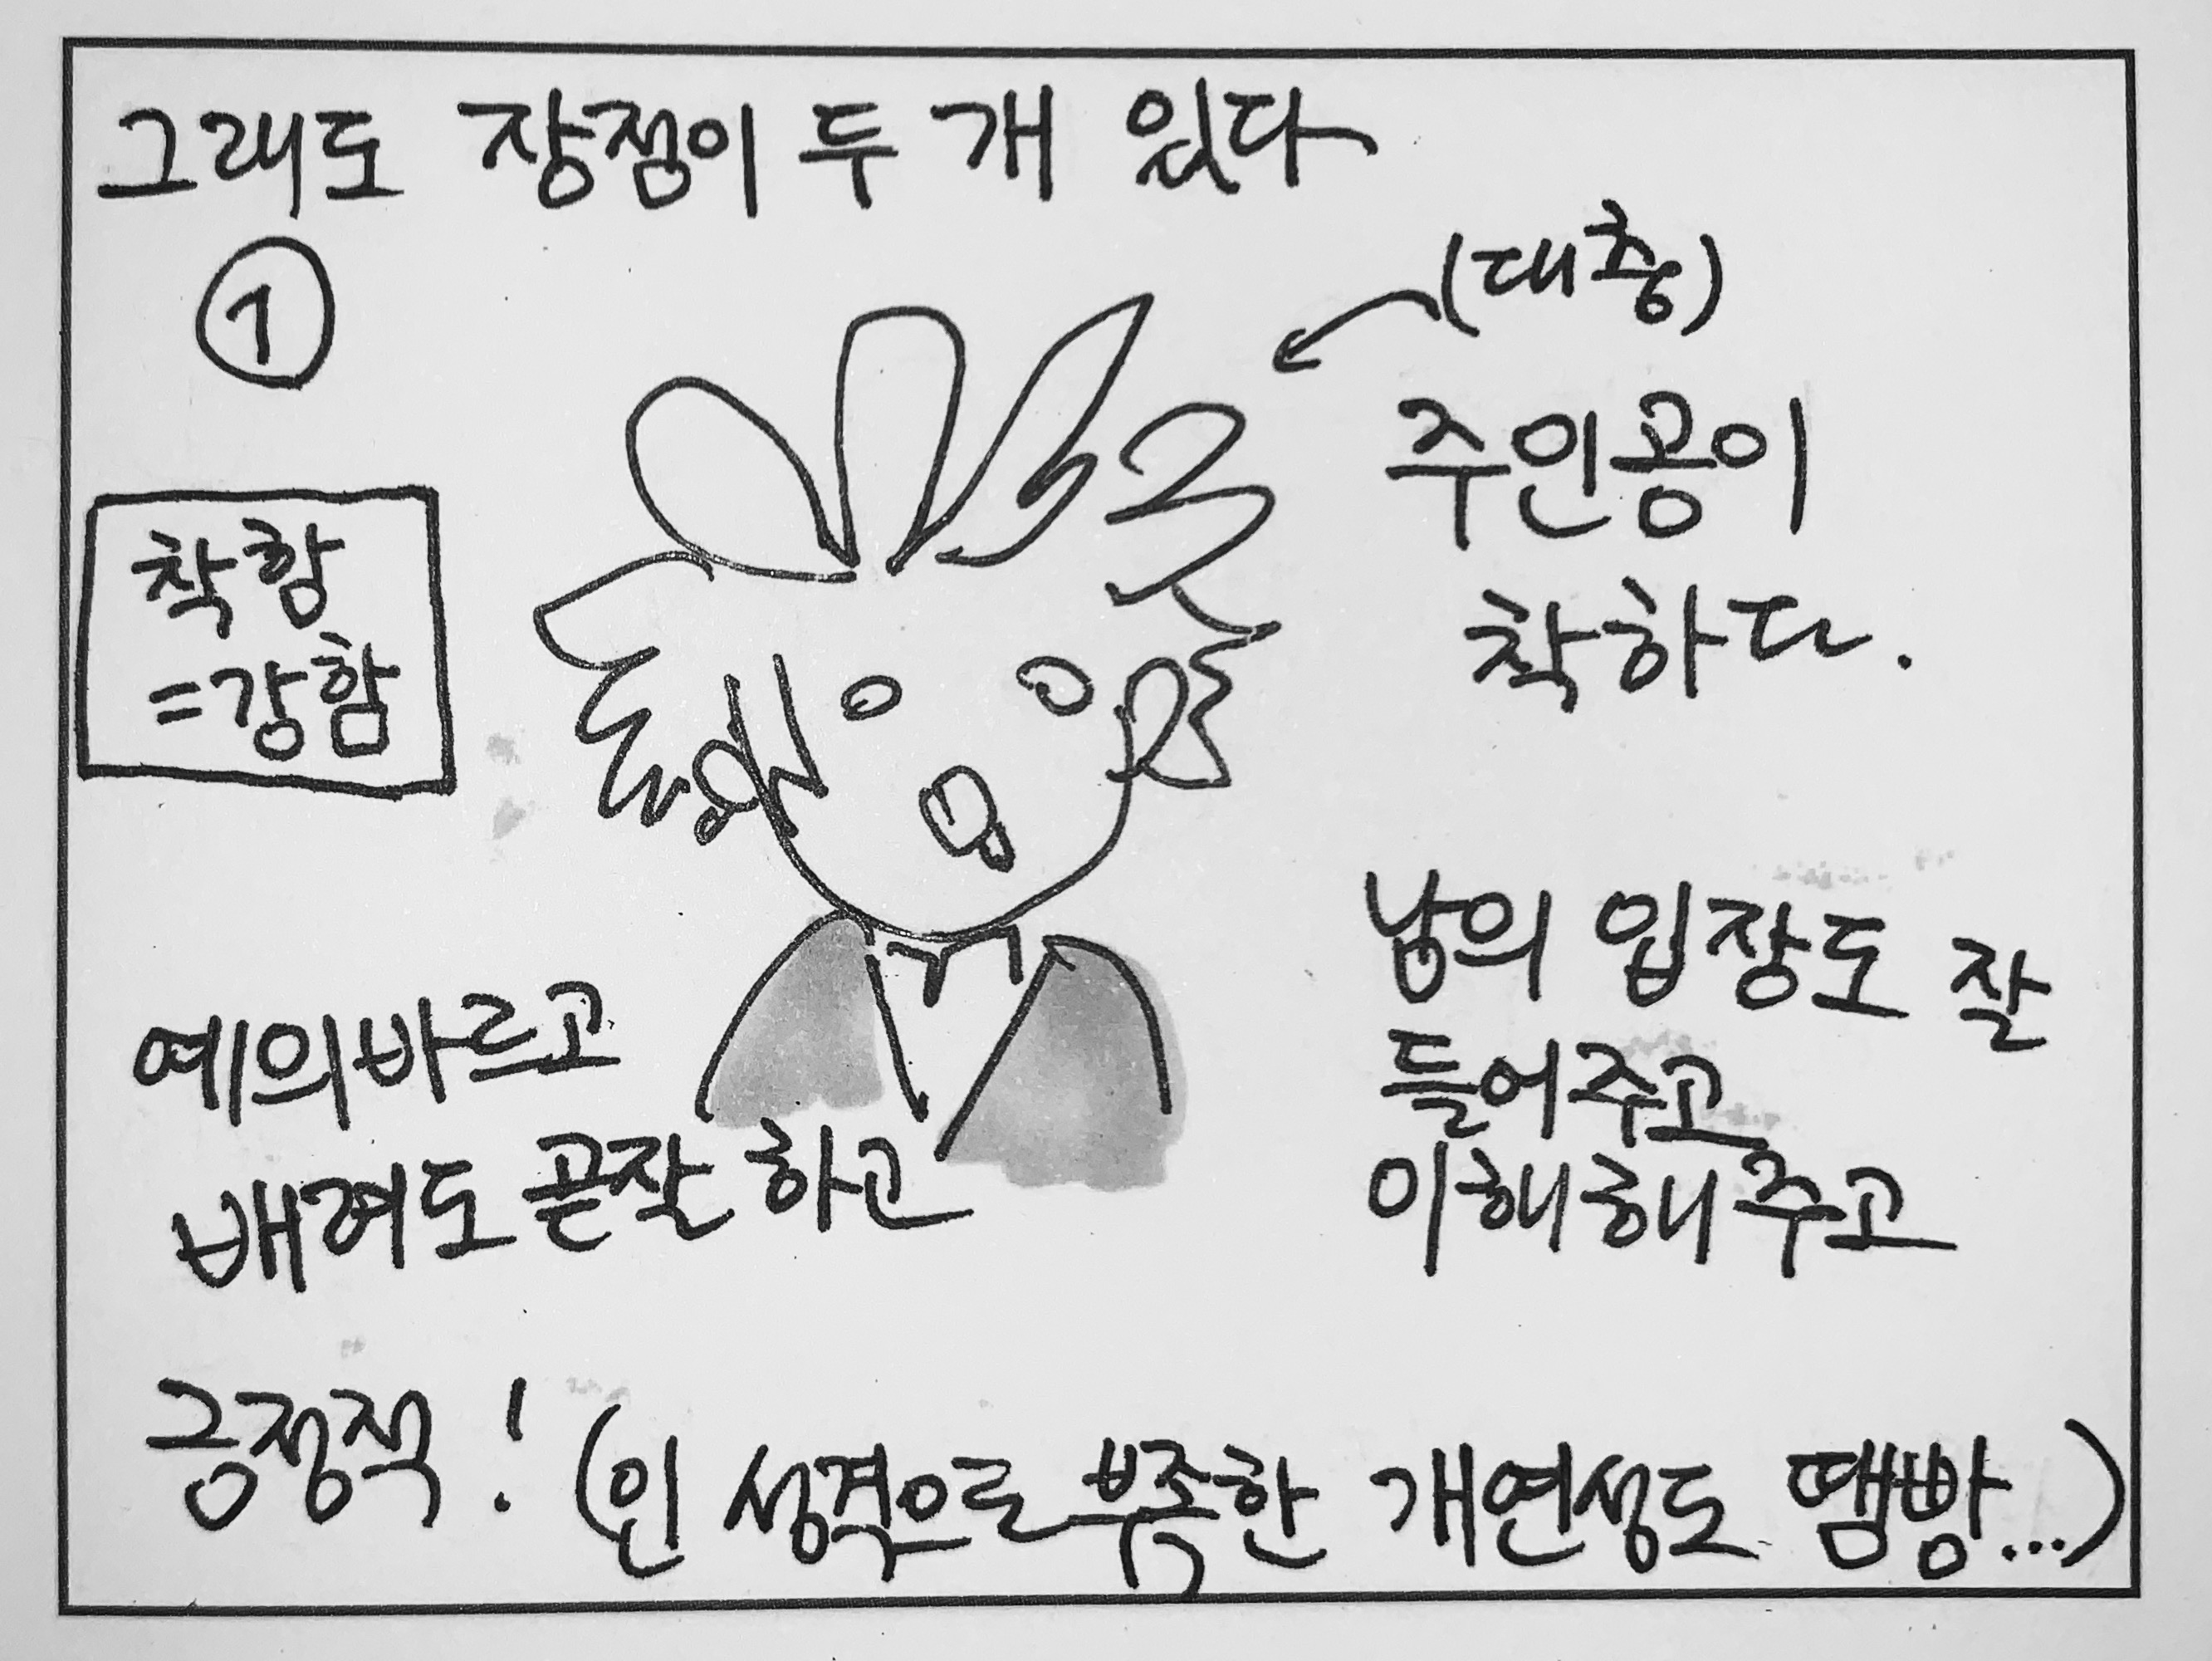 그래도 장점이 두 개 있다
①
(대충)
주인공이
착하다.
착함
=강함
남의 입장도 잘
들어주고
이해해주고
예의바르고
배려도 곧잘 하고
긍정적! (인 성격으로 부족한 개연성도 땜빵...)